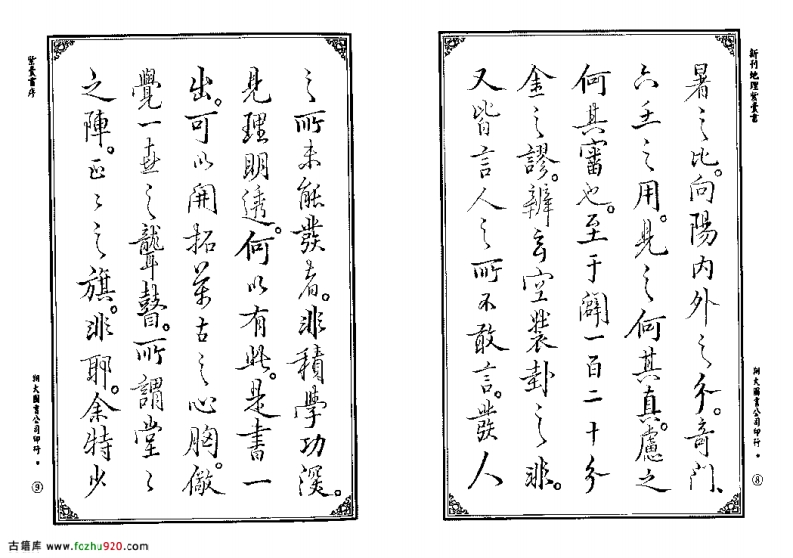 新刊地理紫囊書
暑之比。向陽內外之分。奇門、
六壬之用。見之何其真。慮之
何其審也。至于闢一百二十分
金之謬。辨玄空裝卦之非。
又皆言人之所不敢言。發人
翔大圖書公司印行。
⑧
之所未能發者。非積學功深。
見理明透。何以有此。是書一
出。可以開拓萬古之心胸。儆
覺一世之聾瞽。所謂堂々
之陣。正々之旗。非耶。余特少
紫囊書序
翔大圖書公司印行。
⑨
古籍库 www.fczhu920.com